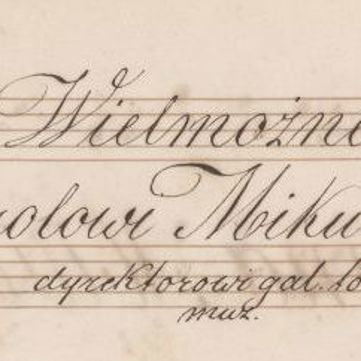 Wielmożne
rolowi Miku
dyrektorowi gal. to
muz.